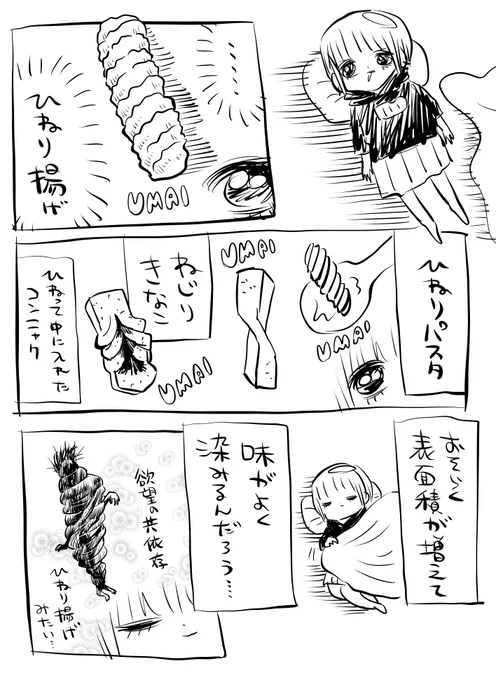 ……
ひねり揚げ
UMAI
ひねりパスタ
UMAI
UMAI
ねじり
きなこ
UMAI
ひねって中に入れた
コンニャク
おそらく
表面積が増えて
味がよく
染みるんだろう…
欲望の共依存
ひねり揚げ
みたい…